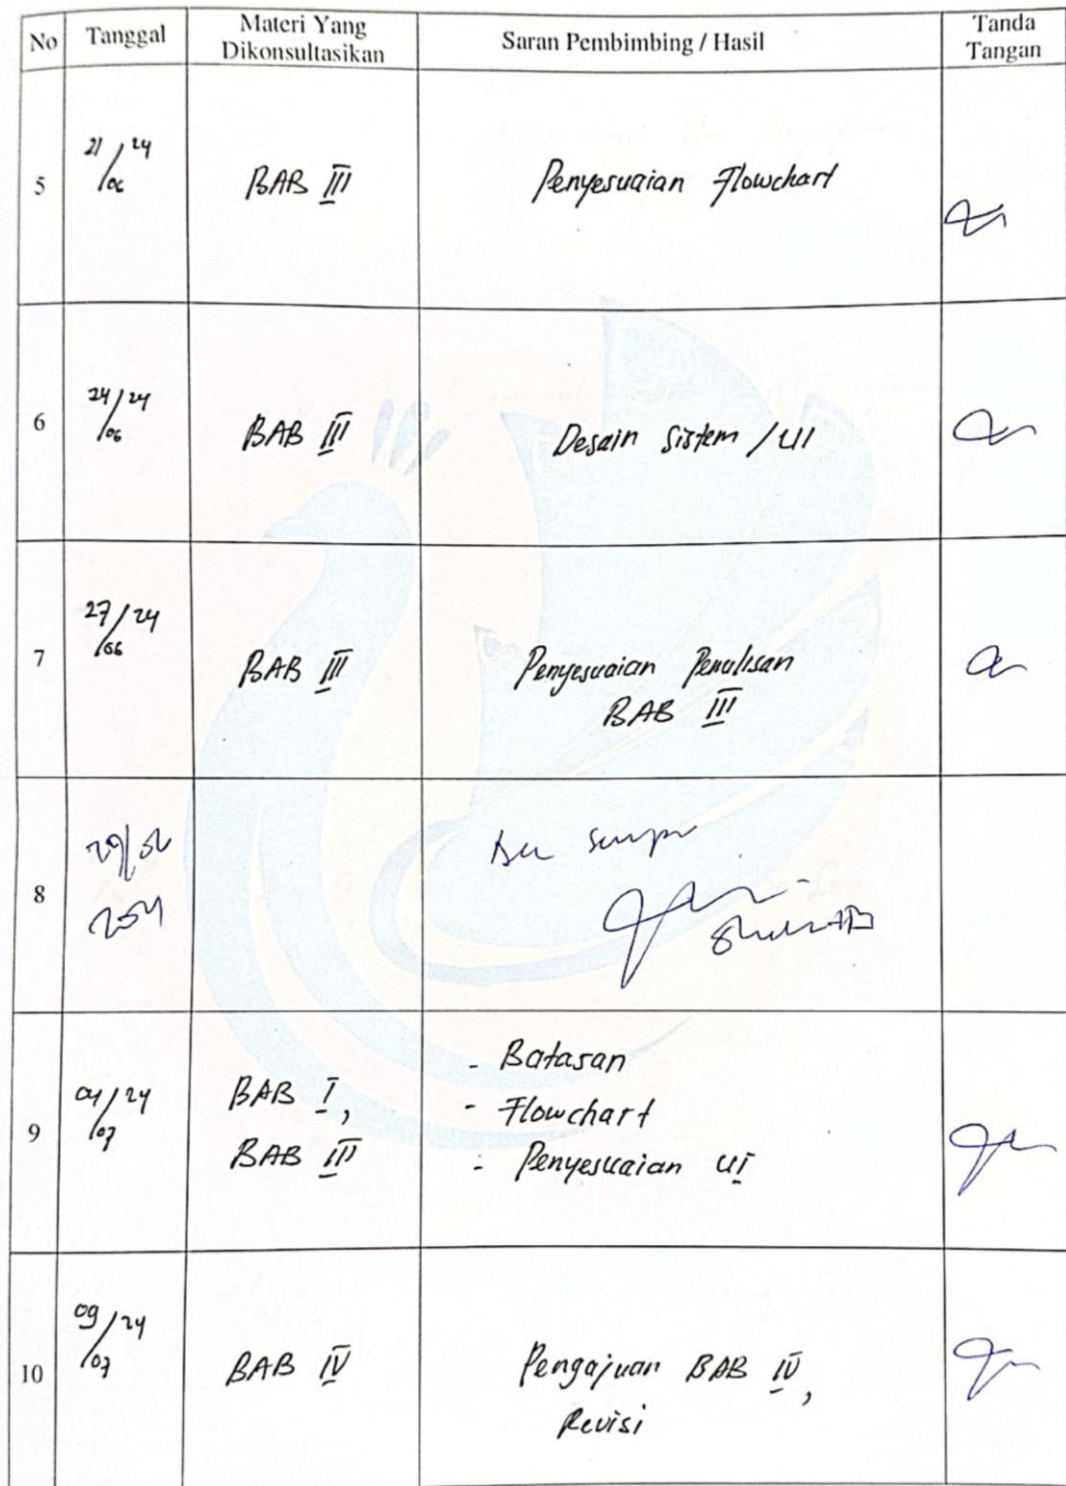 No Tanggal Materi Yang Dikonsultasikan Saran Pembimbing / Hasil Tanda Tangan
5 21/06 24 BAB III Penyesuaian Flowchart
6 24/06 24 BAB III Desain Sistem / UI
7 27/06 24 BAB III Penyesuaian Penulisan
BAB III
8
9 04/07 24 BAB I, - Batasan
BAB III - Flowchart
- Penyesuaian UI
10 09/07 24 BAB IV Pengajuan BAB IV,
Revisi